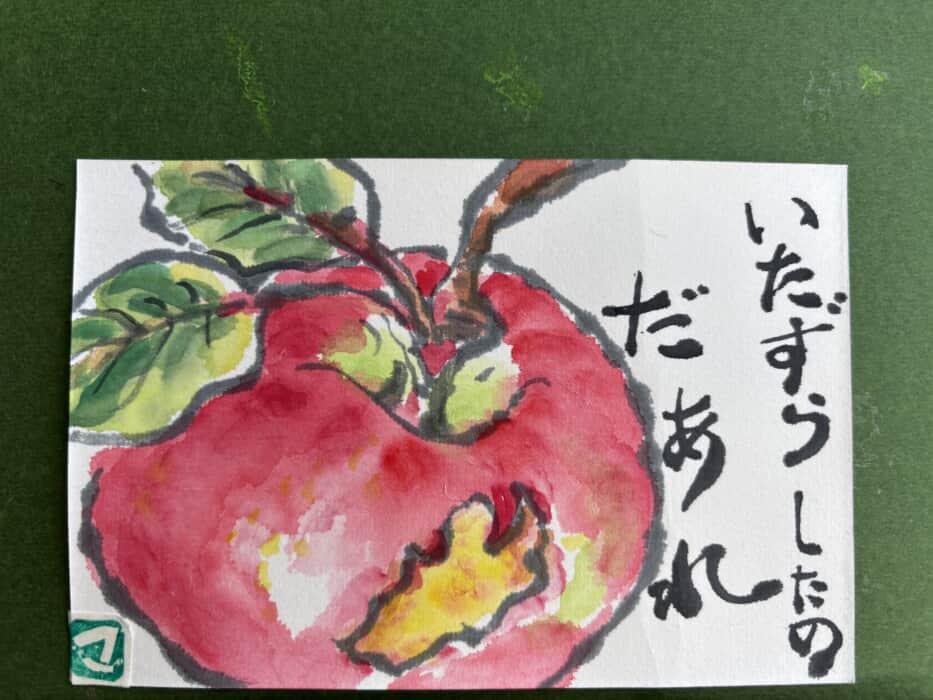 いたずらしたの
だあれ